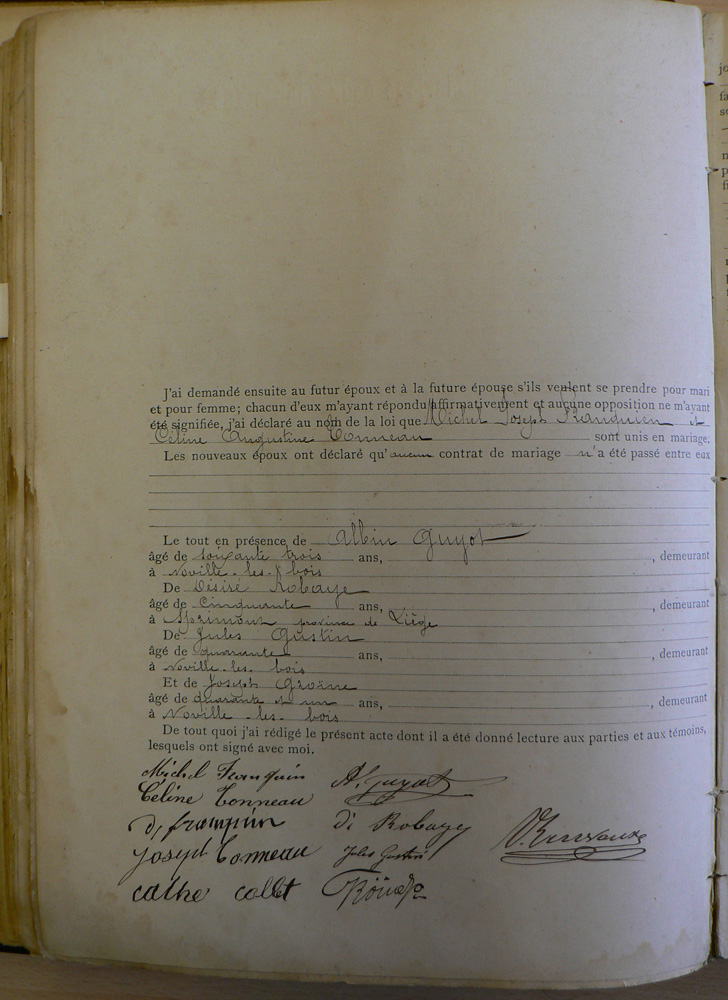 J'ai demandé ensuite au futur époux et à la future épouse s'ils veulent se prendre pour mari
et pour femme; chacun d'eux m'ayant répondu affirmativement et aucune opposition ne m'ayant
été signifiée, j'ai déclaré au nom de la loi que Michel Joseph Franquien et
Céline Augustine Tonneau sont unis en mariage.
Les nouveaux époux ont déclaré qu'aucun contrat de mariage n'a été passé entre eux
Le tout en présence de Albin Guyot
âgé de soixante trois ans, , demeurant
à Noville-les-bois
De Désiré Robaye
âgé de Cinquante ans, , demeurant
à Sprimont province de Liège
De Jules Gustin
âgé de quarante ans, , demeurant
à Noville-les-bois
Et de Joseph
âgé de quarante et un ans, , demeurant
à Noville-les-bois
De tout quoi j'ai rédigé le présent acte dont il a été donné lecture aux parties et aux témoins,
lesquels ont signé avec moi.
Michel Franquin A. Guyot
Céline Tonneau
D, franquin di Robaye
Joseph Tonneau Jules Gustin
cathe collet